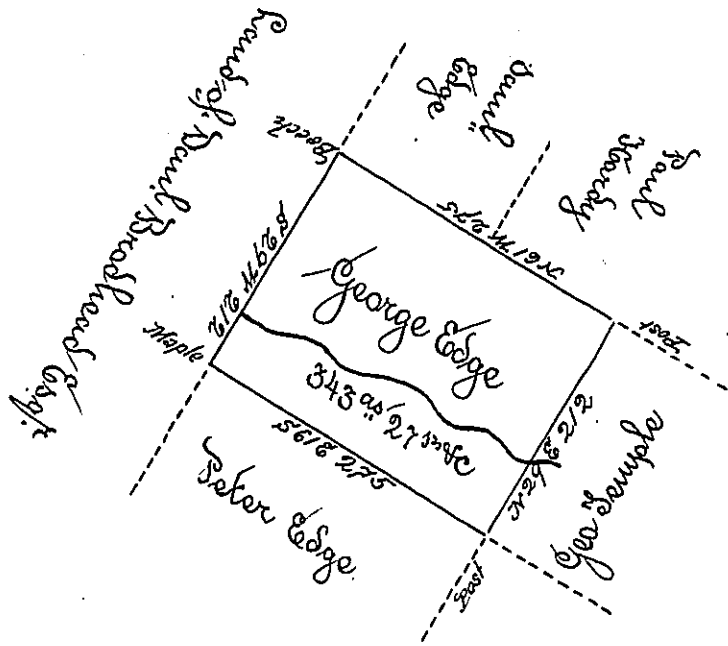 Land of Danl. Brodhead Esqr.
Beech
Saml.
Edge
Paul
Harday
N61W 275
S29W 212
George Edge
343 as 27 prs &c
Maple
Post
S61E 275
N29E 212
Peter Edge
Geo Temple
Post